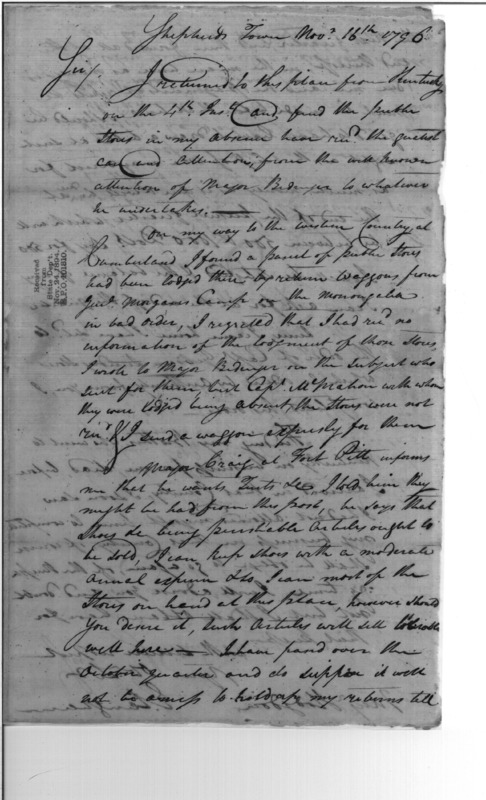 Shepherds Town Nov.r 16th 1796
Sir/. I returned to this place from Kentucky
on the 4th Inst. and found the public
Stores in my absence have rec.d the greatest
care and attention, from the well known
attention of Major Bedinger to whatever
he undertakes.
On my way to the western Country, at
Cumberland I found a parcel of public Stores
had been lodged there by return waggons from
Gen.l Morgans Camp on the monongalia
in bad order, I regretted that I had rec.d no
information of the lodgment of those Stores
I wrote to Major Bedinger on the subject who
sent for them but Cap.t McMahon with whom
they were lodged being absent, the Stores were not
rec.d & I send a waggon expressly for them
Major Craig at Fort Pitt informs
me that he wants Tents &c I told him they
might be had from this post, he says that
Shoes &c being perishable Articles ought to
be sold, I can keep Shoes with a moderate
annual expence &so I can most of the
Stores on hand at this place, however should
You desire it, such Articles will sell
well here — I have passed over the
October quarter and do suppose it will
not be amiss to hold my returns till
Received
from
State Dep't.
Nov. 24, 1894.
R.P.O. 391810.